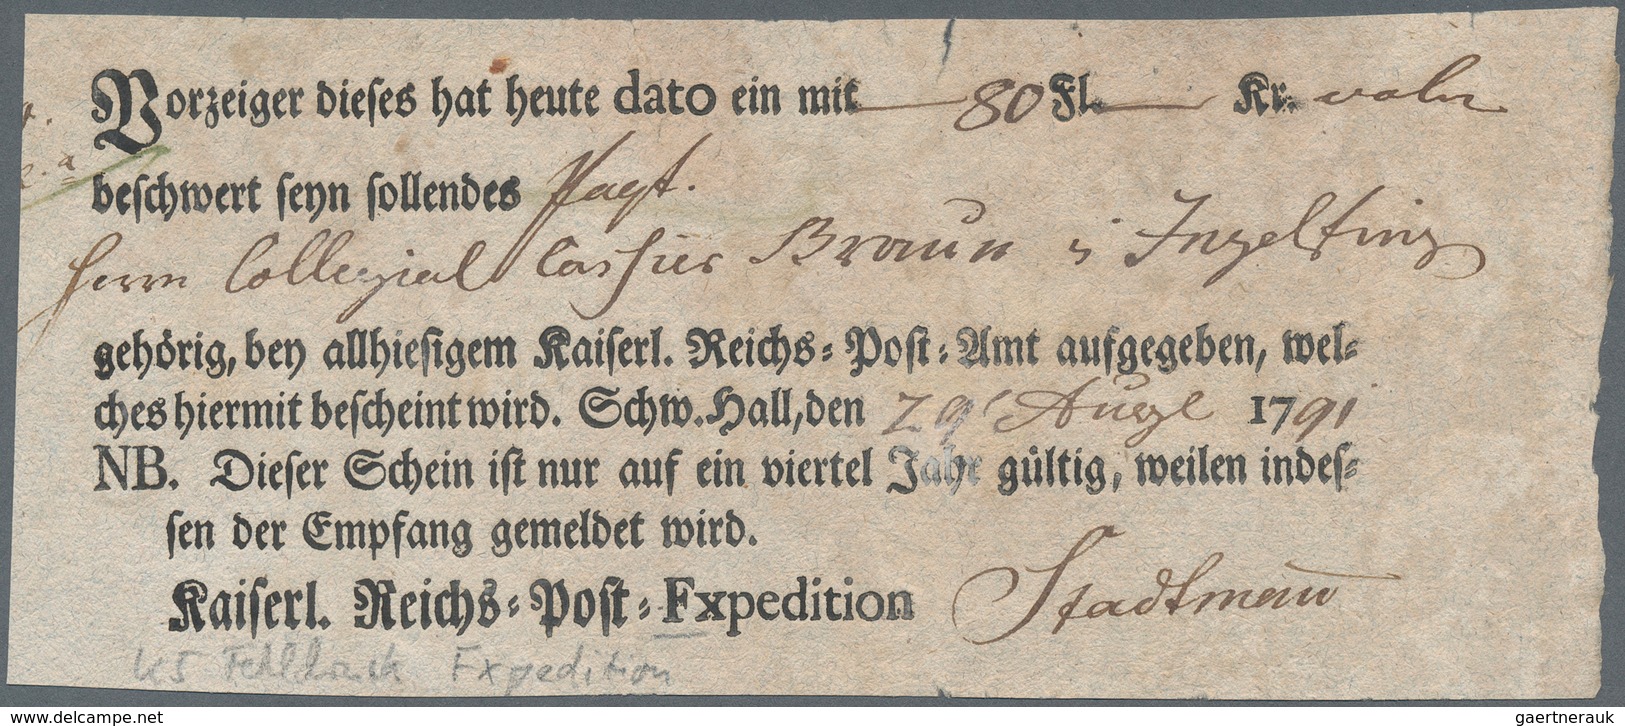 Vorzeiger dieses hat heute dato ein mit 80 Fl. Kr.
beschwert seyn sollendes Paqt.
Herrn Collegial Cassier Braun i Ingelfing
gehörig, bey allhiesigem Kaiserl. Reichs-Post-Amt aufgegeben, wel-
ches hiermit bescheint wird. Schw. Hall, den 29' Augl 1791
NB. Dieser Schein ist nur auf ein viertel Jahr gültig, weilen indes-
sen der Empfang gemeldet wird.
Kaiserl. Reichs-Post-Fxpedition Stadtmann
Fehldruck Fxpedition
www.delcampe.net
gaertnerauk